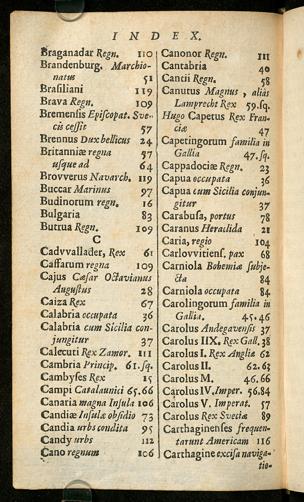 INDEX.
Braganadar Regn. 110
Brandenburg. Marchio-
natus 51
Brasiliani 119
Brava Regn. 109
Bremensis Episcopat. Sve-
cis cessit 57
Brennus Dux bellicus 24
Britanniæ regna 57
usque ad 64
Brovverus Navarch. 119
Buccar Marinus 97
Budinorum regn. 16
Bulgaria 83
Butrua Regn. 109
C
Cadvvallader, Rex 61
Caffarum regna 109
Cajus Cæsar Octavianus
Augustus 28
Caiza Rex 67
Calabria occupata 36
Calabria cum Sicilia con-
jungitur 37
Calecuti Rex Zamor. 111
Cambria Princip. 61.sq.
Cambyses Rex 15
Campi Catalaunici 65.66
Canaria magna Insula 106
Candiæ Insulæ obsidio 73
Candia urbs condita 95
Candy urbs 112
Cano regnum 106
Canonor Regn. 111
Cantabria 40
Cancii Regn. 58
Canutus Magnus, aliàs
Lamprecht Rex 59.sq.
Hugo Capetus Rex Fran-
ciæ 47
Capetingorum familia in
Gallia 47.sq.
Cappadociæ Regn. 23
Capua occupata 36
Capua cum Sicilia conjun-
gitur 37
Carabusa, portus 78
Caranus Heraclida 21
Caria, regio 104
Carlovvitiensf. pax 68
Carniola Bohemiæ subje-
cta 84
Carniola occupata 84
Carolingorum familia in
Gallia. 45.46
Carolus Andegavensis 37
Carolus IIX. Rex Gall. 38
Carolus I. Rex Angliæ 62
Carolus II. 62.63
Carolus M. 46.66
Carolus IV. Imper. 56.84
Carolus V. Imperat. 57
Carolus Rex Sveciæ 89
Carthaginenses frequen-
tarunt Americam 116
Carthagine excisa naviga-
tio-